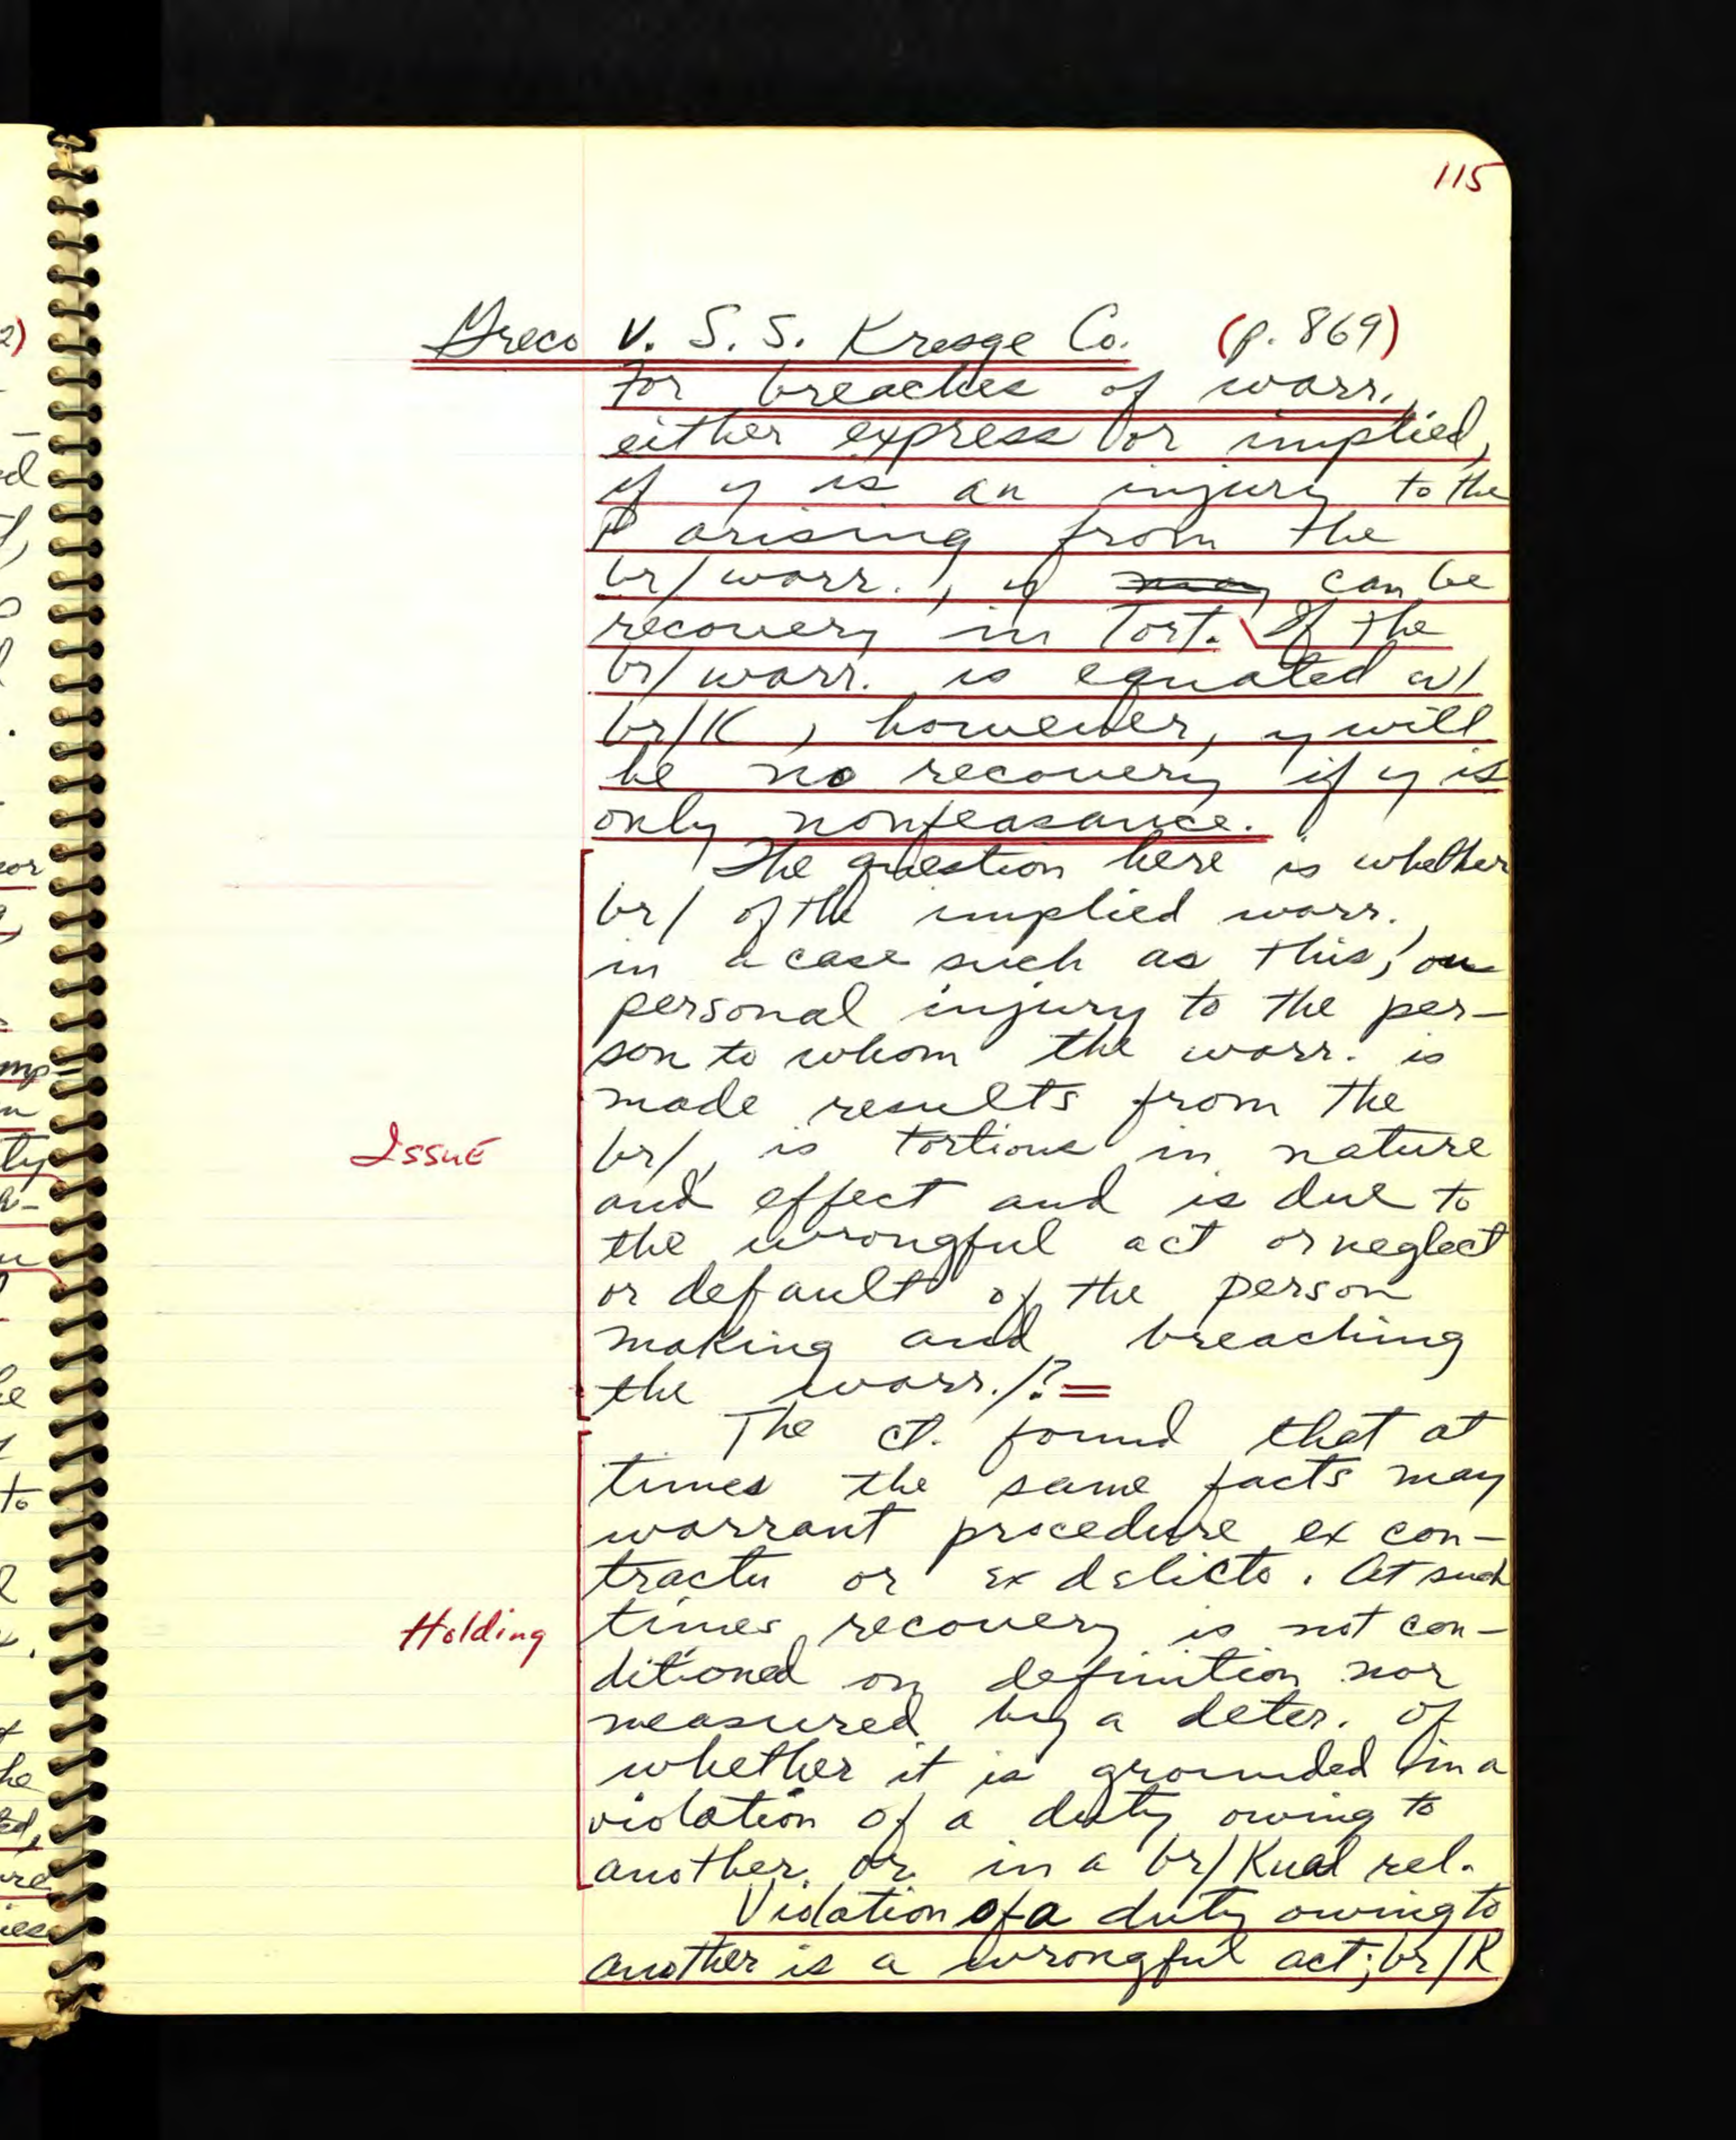 115
Greco v. S. S. Kresge Co. (p. 869)
For breaches of warr.,
either express or implied,
if y is an injury to the
P arising from the
br/warr., y may can be
recovery in Tort. If the
br/warr. is equated w/
br/K, however, y will
be no recovery if y is
only nonfeasance.
The question here is whether
br/ of the implied warr.
in a case such as this,
personal injury to the per-
son to whom the warr. is
made results from the
Issue
br/, is tortious in nature
and effect and is due to
the wrongful act or neglect
or default of the person
making and breaching
the warr./? =
The ct. found that at
times the same facts may
warrant procedure ex con-
tractu or ex delicto. At such
Holding
times recovery is not con-
ditioned on definition nor
measured by a deter. of
whether it is grounded in a
violation of a duty owing to
another or in a br/Kual rel.
Violation of a duty owing to
another is a wrongful act; br/K